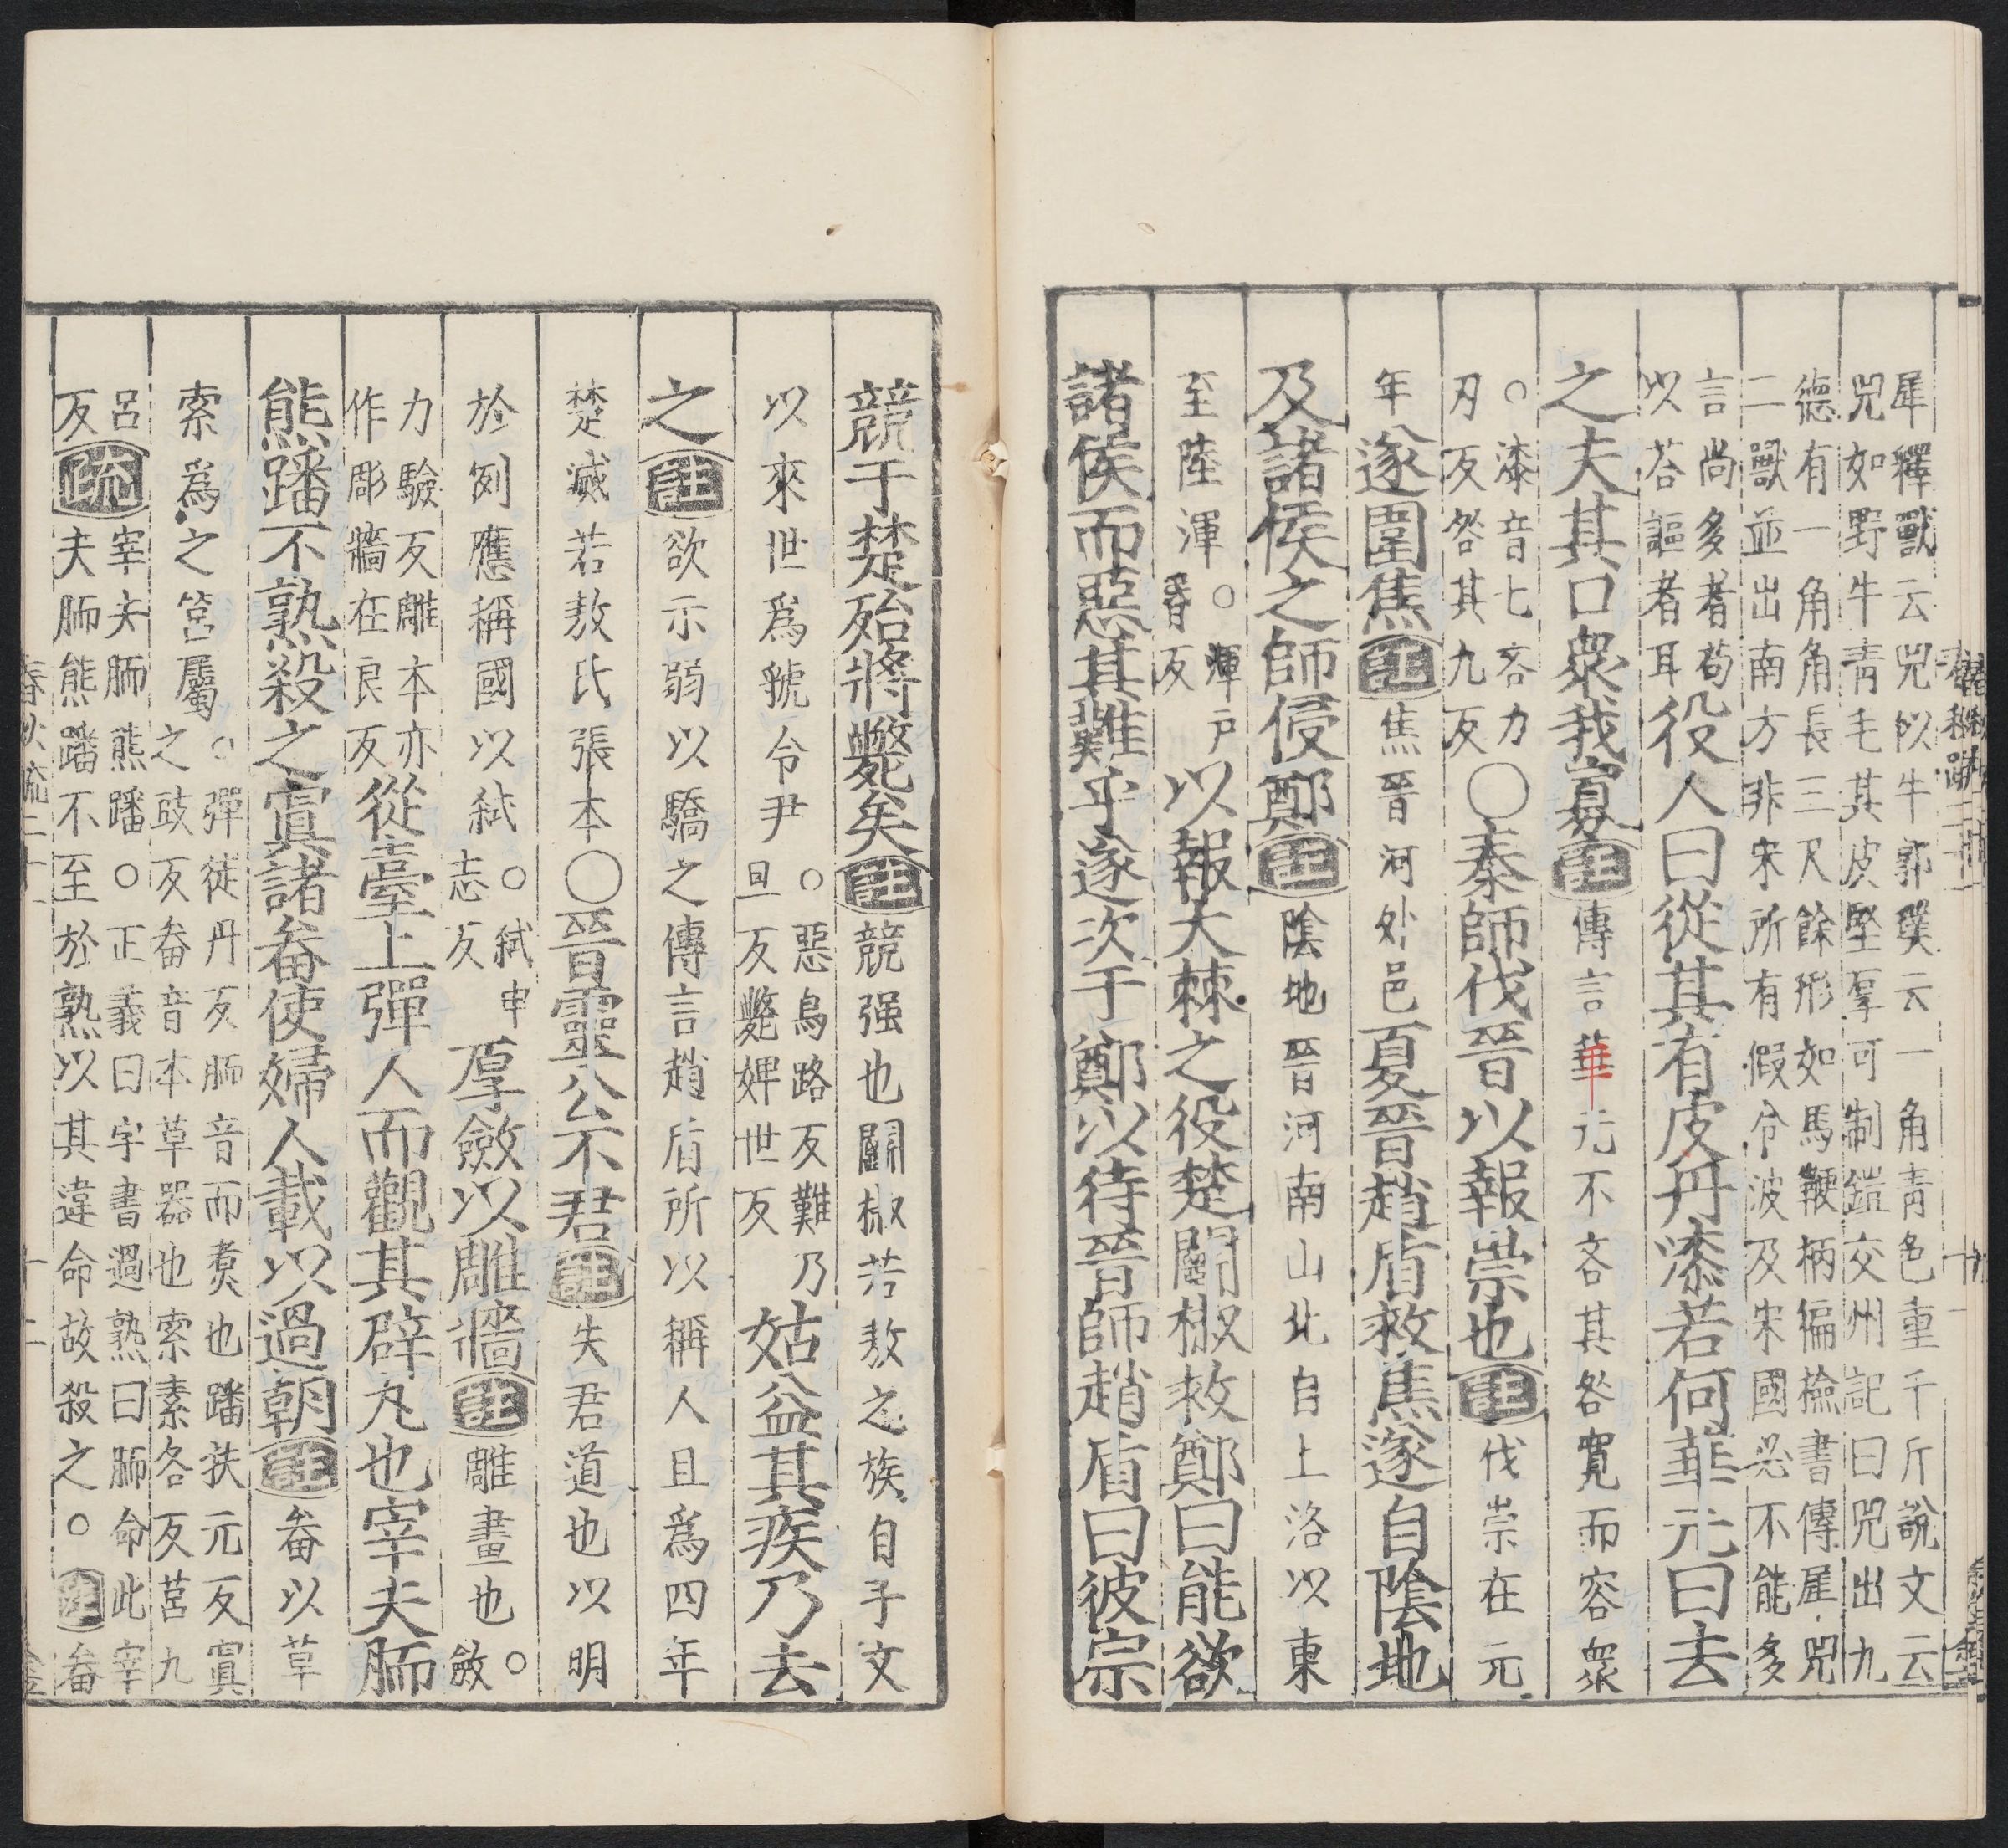 犀釋獸云兕似牛郭璞云一角青色重千斤說文云
兕如野牛青毛其皮堅厚可制鎧交州記曰兕出九
德有一角角長三尺餘形如馬鞭柄偏檢書傳犀兕
二獸並出南方非宋所有假令波及宋國必不能多
言尚多者苟以荅謳者耳役人曰從其有皮丹漆若何華元曰去
之夫其口衆我寡註傳言華元不吝其咎寬而容衆
○漆音七吝力刃反咎其九反○秦師伐晉以報崇也註伐崇在元
年遂圍焦註焦晉河外邑夏晉趙盾救焦遂自陰地
及諸侯之師侵鄭註陰地晉河南山北自上洛以東
至陸渾○渾戶昬反以報大棘之役楚鬬椒救鄭曰能欲
諸侯而惡其難乎遂次于鄭以待晉師趙盾曰彼宗
競于楚殆將斃矣註競强也鬬椒若敖之族自子文
以來世爲號令尹○惡烏路反難乃旦反斃婢世反姑益其疾乃去
之註欲示弱以驕之傳言趙盾所以稱人且爲四年
楚滅若敖氏張本○晉靈公不君註失君道也以明
於例應稱國以弒○弒申志反厚斂以雕牆註雕畫也○斂
力驗反雕本亦作彫牆在良反從臺上彈人而觀其辟丸也宰夫胹
熊蹯不熟殺之寘諸畚使婦人載以過朝註畚以草
索爲之筥屬○彈徒丹反胹音而煑也蹯扶元反寘之豉反畚音本草器也索素各反筥九
呂反疏宰夫胹熊蹯○正義曰字書過熟曰胹命此宰
夫胹熊蹯不至於熟以其違命故殺之○註畚
春秋疏二十一
十二